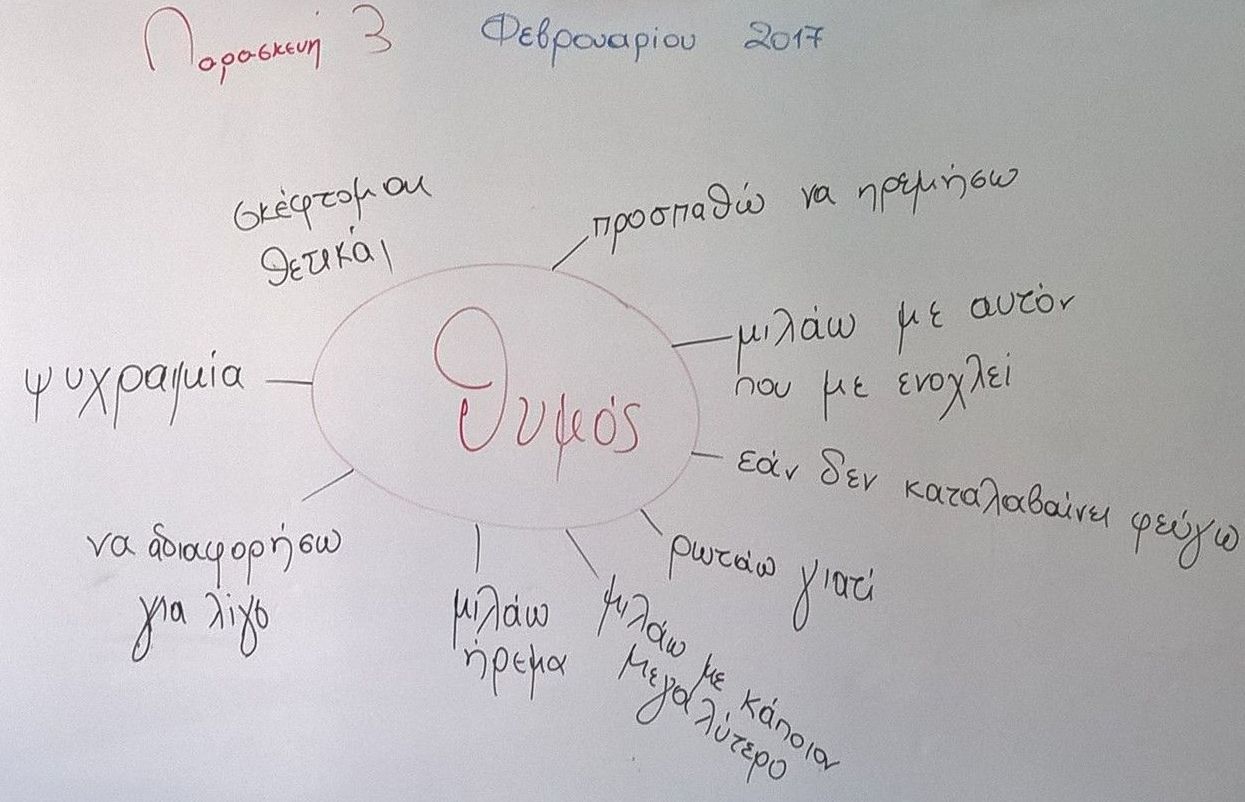 Παρασκευή 3 Φεβρουαρίου 2017
σκέφτομαι
θετικά
προσπαθώ να ηρεμήσω
μιλάω με αυτόν
που με ενοχλεί
ψυχραιμία
Θυμός
εάν δεν καταλαβαίνει φεύγω
να αδιαφορήσω
για λίγο
μιλάω
ήρεμα
μιλάω με κάποιον
μεγαλύτερο
ρωτάω γιατί